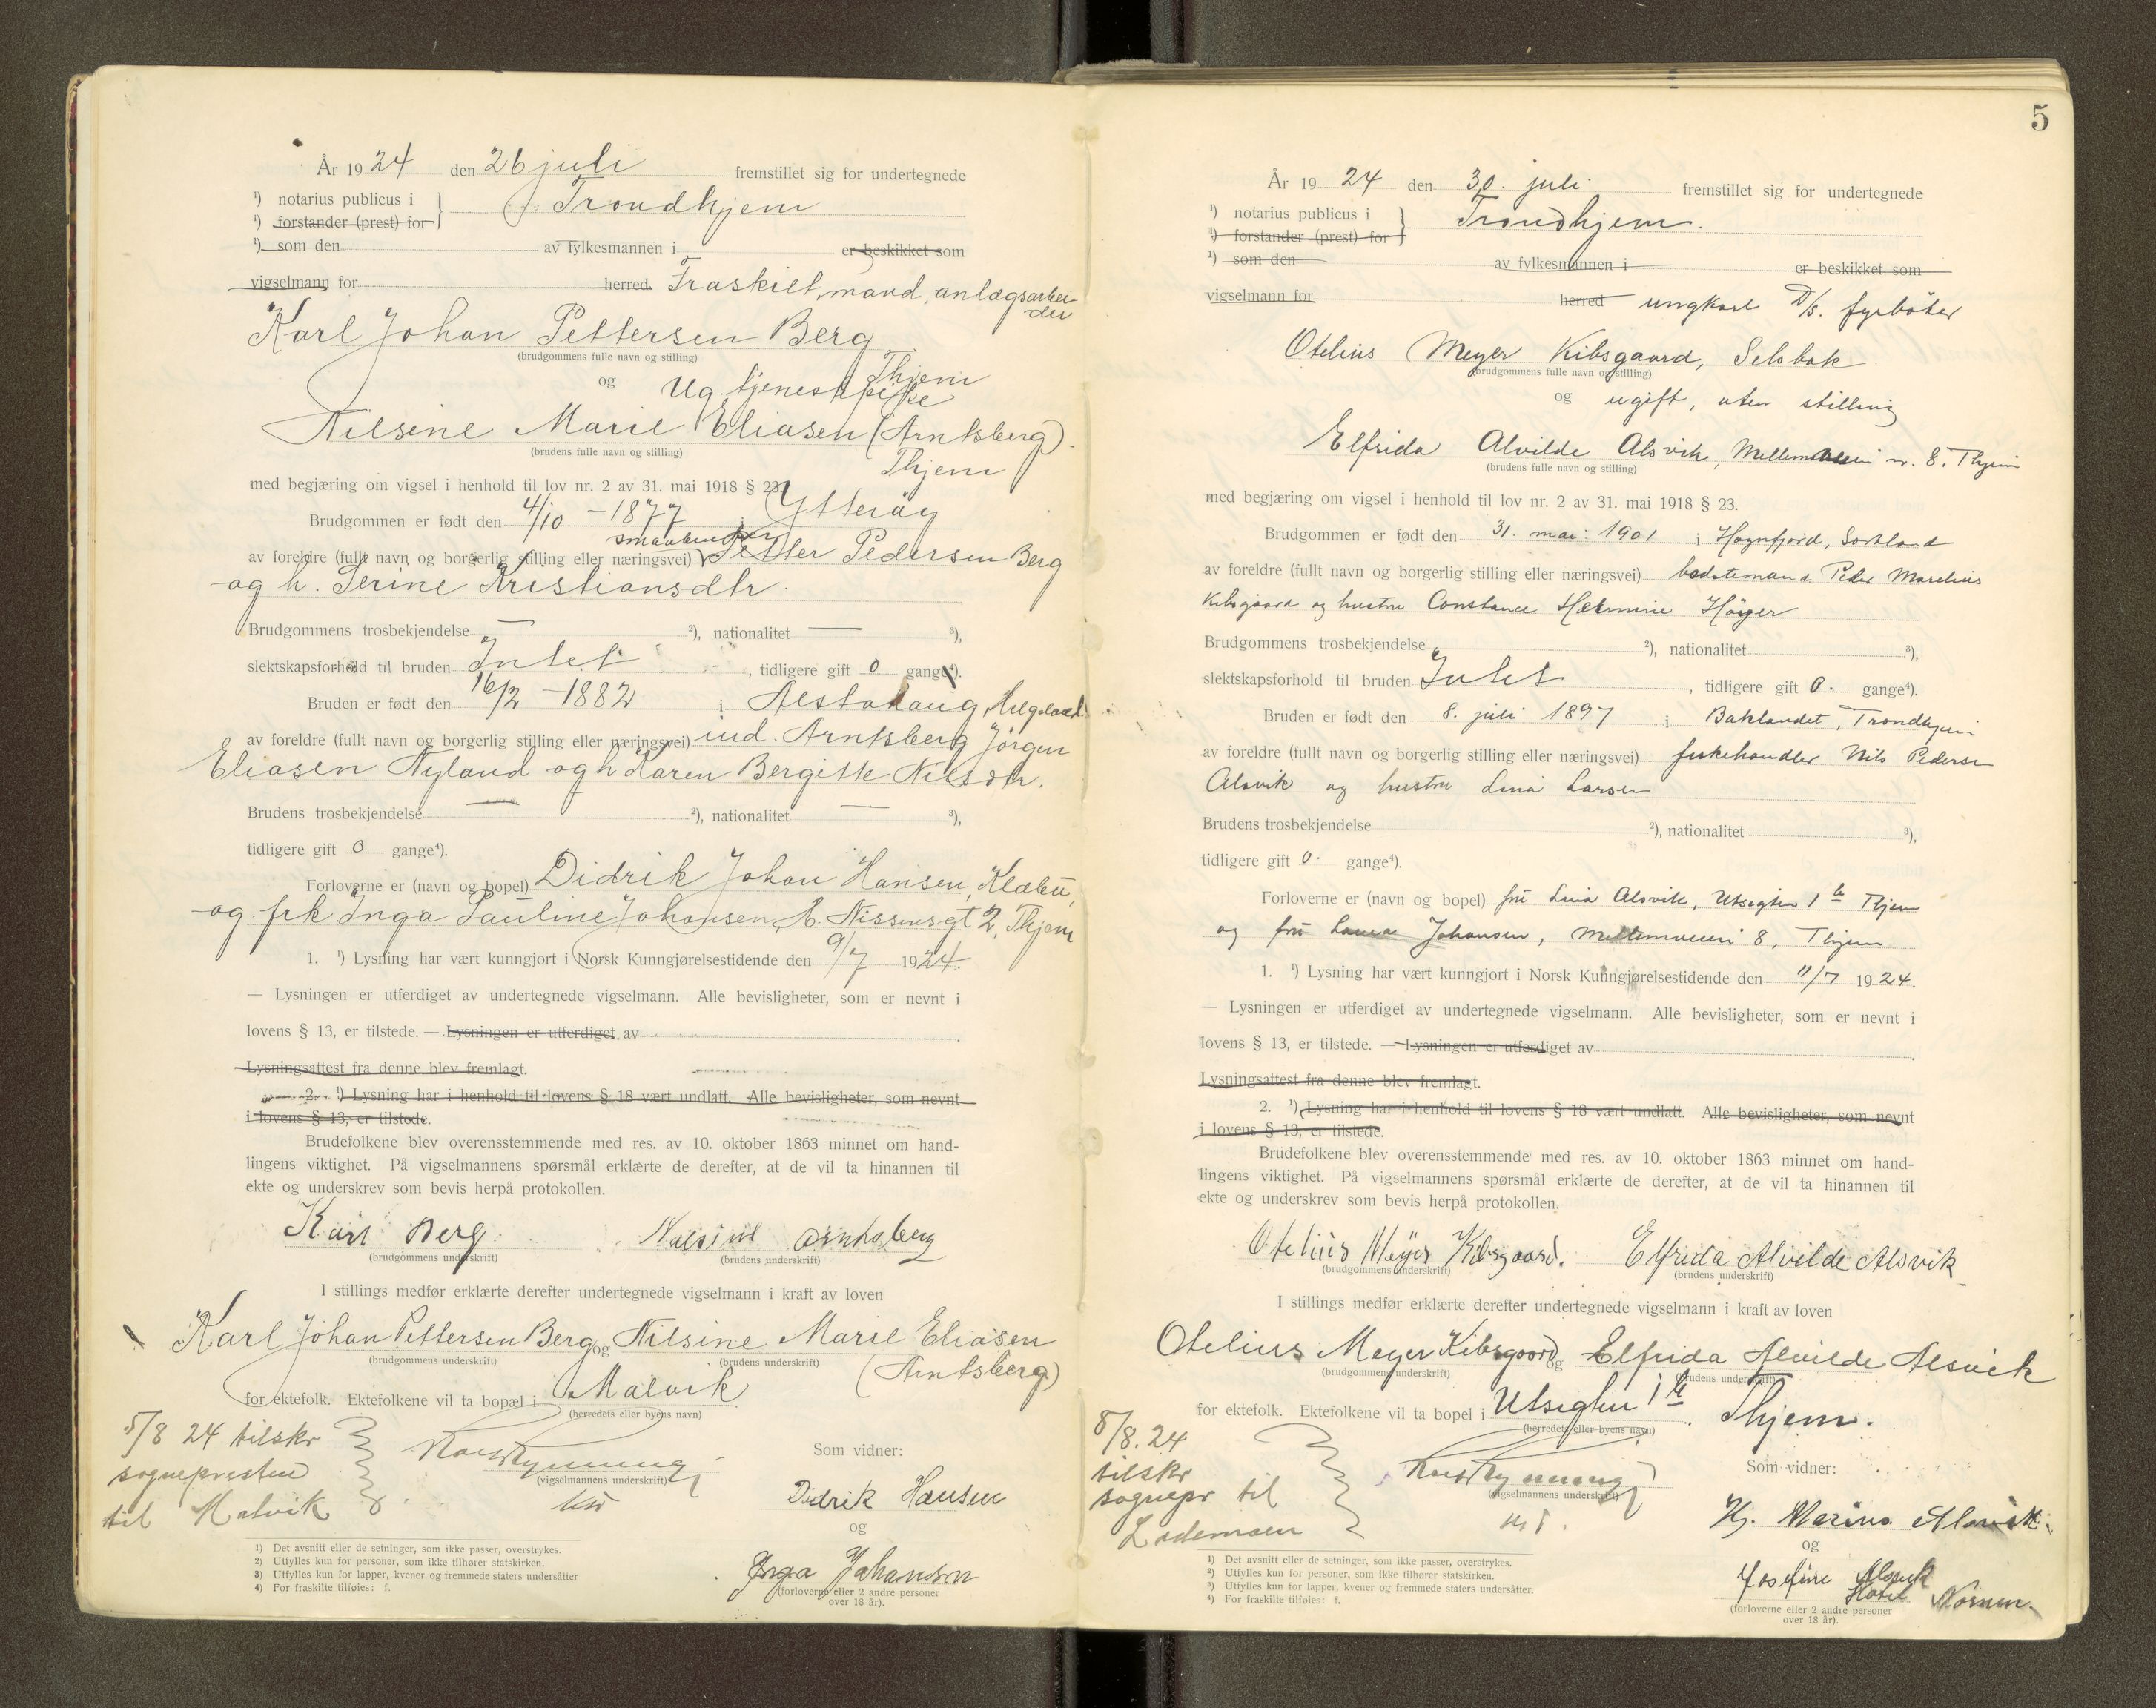 År 1924 den 26 juli fremstillet sig for undertegnede
¹) notarius publicus i } Trondhjem
¹) forstander (prest) for
¹) som den av fylkesmannen i er beskikket som
vigselmann for herred. Fraskilt mand, anlægsarbei-
der
Karl Johan Pettersen Berg
(brudgommens fulle navn og stilling)
Thjem
og Ug. tjenestepike
Nilsine Marie Eliasen (Arntsberg).
(brudens fulle navn og stilling)
Thjem
med begjæring om vigsel i henhold til lov nr. 2 av 31. mai 1918 § 23.
Brudgommen er født den 4/10 - 1877 i Ytterøy
av foreldre (fullt navn og borgerlig stilling eller næringsvei) Petter Pedersen Berg
og h. Serine Kristiansdtr.
Brudgommens trosbekjendelse — ²), nationalitet — ³),
slektskapsforhold til bruden Intet, tidligere gift 0 gange⁴).
Bruden er født den 16/2 - 1882 i Alstahaug, Helgeland
av foreldre (fullt navn og borgerlig stilling eller næringsvei) ind. Arntsberg Jörgen
Eliasen Nyland og h Karen Bergitte Nilsdtr.
Brudens trosbekjendelse — ²), nationalitet — ³),
tidligere gift 0 gange⁴).
Forloverne er (navn og bopel) Didrik Johan Hansen, Klæbu,
og frk Inga Pauline Johansen, E. Nissensgt 2, Thjem
1. ¹) Lysning har vært kunngjort i Norsk Kunngjørelsestidende den 9/7 1924.
— Lysningen er utferdiget av undertegnede vigselmann. Alle bevisligheter, som er nevnt i
lovens § 13, er tilstede. — Lysningen er utferdiget av
Lysningsattest fra denne blev fremlagt.
2. ¹) Lysning har i henhold til lovens § 18 vært undlatt. Alle bevisligheter, som nevnt
i lovens § 13, er tilstede.
Brudefolkene blev overensstemmende med res. av 10. oktober 1863 minnet om hand-
lingens viktighet. På vigselmannens spørsmål erklærte de derefter, at de vil ta hinannen til
ekte og underskrev som bevis herpå protokollen.
Karl Berg Nilsine Arntsberg
(brudgommens underskrift) (brudens underskrift)
I stillings medfør erklærte derefter undertegnede vigselmann i kraft av loven
Karl Johan Pettersen Berg og Nilsine Marie Eliasen
(brudgommens underskrift) (brudens underskrift)
(Arntsberg)
for ektefolk. Ektefolkene vil ta bopæl i Malvik
(herredets eller byens navn)
5/8 24 tilskr
sognepresten
til Malvik
(vigselmannens underskrift)
Som vidner:
Didrik Hansen
og
Inga Johansen
(forloverne eller 2 andre personer
over 18 år).
1) Det avsnitt eller de setninger, som ikke passer, overstrykes.
2) Utfylles kun for personer, som ikke tilhører statskirken.
3) Utfylles kun for lapper, kvener og fremmede staters undersåtter
4) For fraskilte tilføies: f.
5
År 1924 den 30. juli fremstillet sig for undertegnede
¹) notarius publicus i } Trondhjem.
¹) forstander (prest) for
¹) som den av fylkesmannen i er beskikket som
vigselmann for herred ungkarl D/s. fyrböter
Otelius Meyer Kibsgaard, Selsbak
(brudgommens fulle navn og stilling)
og ugift, uten stilling
Elfrida Alvilde Alsvik, Mellemveien nr. 8, Thjem
(brudens fulle navn og stilling)
med begjæring om vigsel i henhold til lov nr. 2 av 31. mai 1918 § 23.
Brudgommen er født den 31. mai 1901 i Høgnfjord, Sortland
av foreldre (fullt navn og borgerlig stilling eller næringsvei) Peder Marelius
Kibsgaard og hustru Constance Hermine Höyer
Brudgommens trosbekjendelse ²), nationalitet ³),
slektskapsforhold til bruden Intet, tidligere gift 0. gange⁴).
Bruden er født den 8. juli 1897 i Baklandet, Trondhjem
av foreldre (fullt navn og borgerlig stilling eller næringsvei) fiskehandler Nils Pedersen
Alsvik og hustru Lina Larsen
Brudens trosbekjendelse ²), nationalitet ³),
tidligere gift 0. gange⁴).
Forloverne er (navn og bopel) fru Lina Alsvik, Utsigten 1 b Thjem
og fru Laura Johansen, Mellemveien 8, Thjem
1. ¹) Lysning har vært kunngjort i Norsk Kunngjørelsestidende den 11/7 1924.
— Lysningen er utferdiget av undertegnede vigselmann. Alle bevisligheter, som er nevnt i
lovens § 13, er tilstede. — Lysningen er utferdiget av
Lysningsattest fra denne blev fremlagt.
2. ¹) Lysning har i henhold til lovens § 18 vært undlatt. Alle bevisligheter, som nevnt
i lovens § 13, er tilstede.
Brudefolkene blev overensstemmende med res. av 10. oktober 1863 minnet om hand-
lingens viktighet. På vigselmannens spørsmål erklærte de derefter, at de vil ta hinannen til
ekte og underskrev som bevis herpå protokollen.
Otelius Meyer Kibsgaard. Elfrida Alvilde Alsvik
(brudgommens underskrift) (brudens underskrift)
I stillings medfør erklærte derefter undertegnede vigselmann i kraft av loven
Otelius Meyer Kibsgaard og Elfrida Alvilde Alsvik
(brudgommens underskrift) (brudens underskrift)
for ektefolk. Ektefolkene vil ta bopel i Utsigten 1 b. Thjem.
(herredets eller byens navn)
8/8. 24
tilskr
sognepr til
Lademoen
(vigselmannens underskrift)
Som vidner:
Hj. Marino Alsvik.
og
Josefine Alsvik
Hotel Nornen.
(forloverne eller 2 andre personer
over 18 år).
¹) Det avsnitt eller de setninger, som ikke passer, overstrykes.
²) Utfylles kun for personer, som ikke tilhører statskirken.
³) Utfylles kun for lapper, kvener og fremmede staters undersåtter.
⁴) For fraskilte tilføies: f.